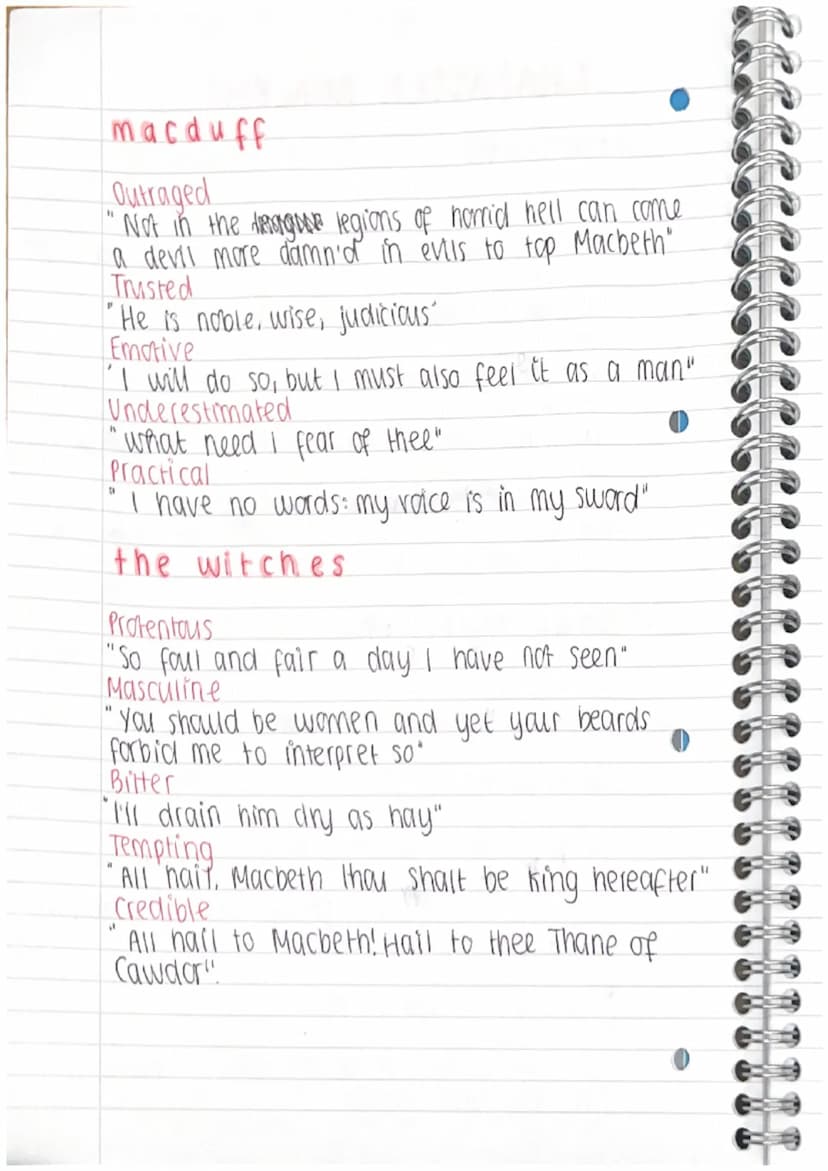 macduff
Outraged
"Not in the legions of horrid hell can come
a devil more damn'd in evils to top Macbeth"
Trusted
"He is noble, wise, judicious"
Emotive
"I will do so, but I must also feel it as a man"
Underestimated
"What need I fear of thee"
Practical
"I have no words: my voice is in my sword"
the witches
Protentous
"So foul and fair a day I have not seen"
Masculine
"You should be women and yet your beards
forbid me to interpret so"
Bitter
"I'll drain him dry as hay"
Tempting
"All hail, Macbeth thou shalt be king hereafter"
Credible
"All hail to Macbeth! Hail to thee Thane of
Cawdor".